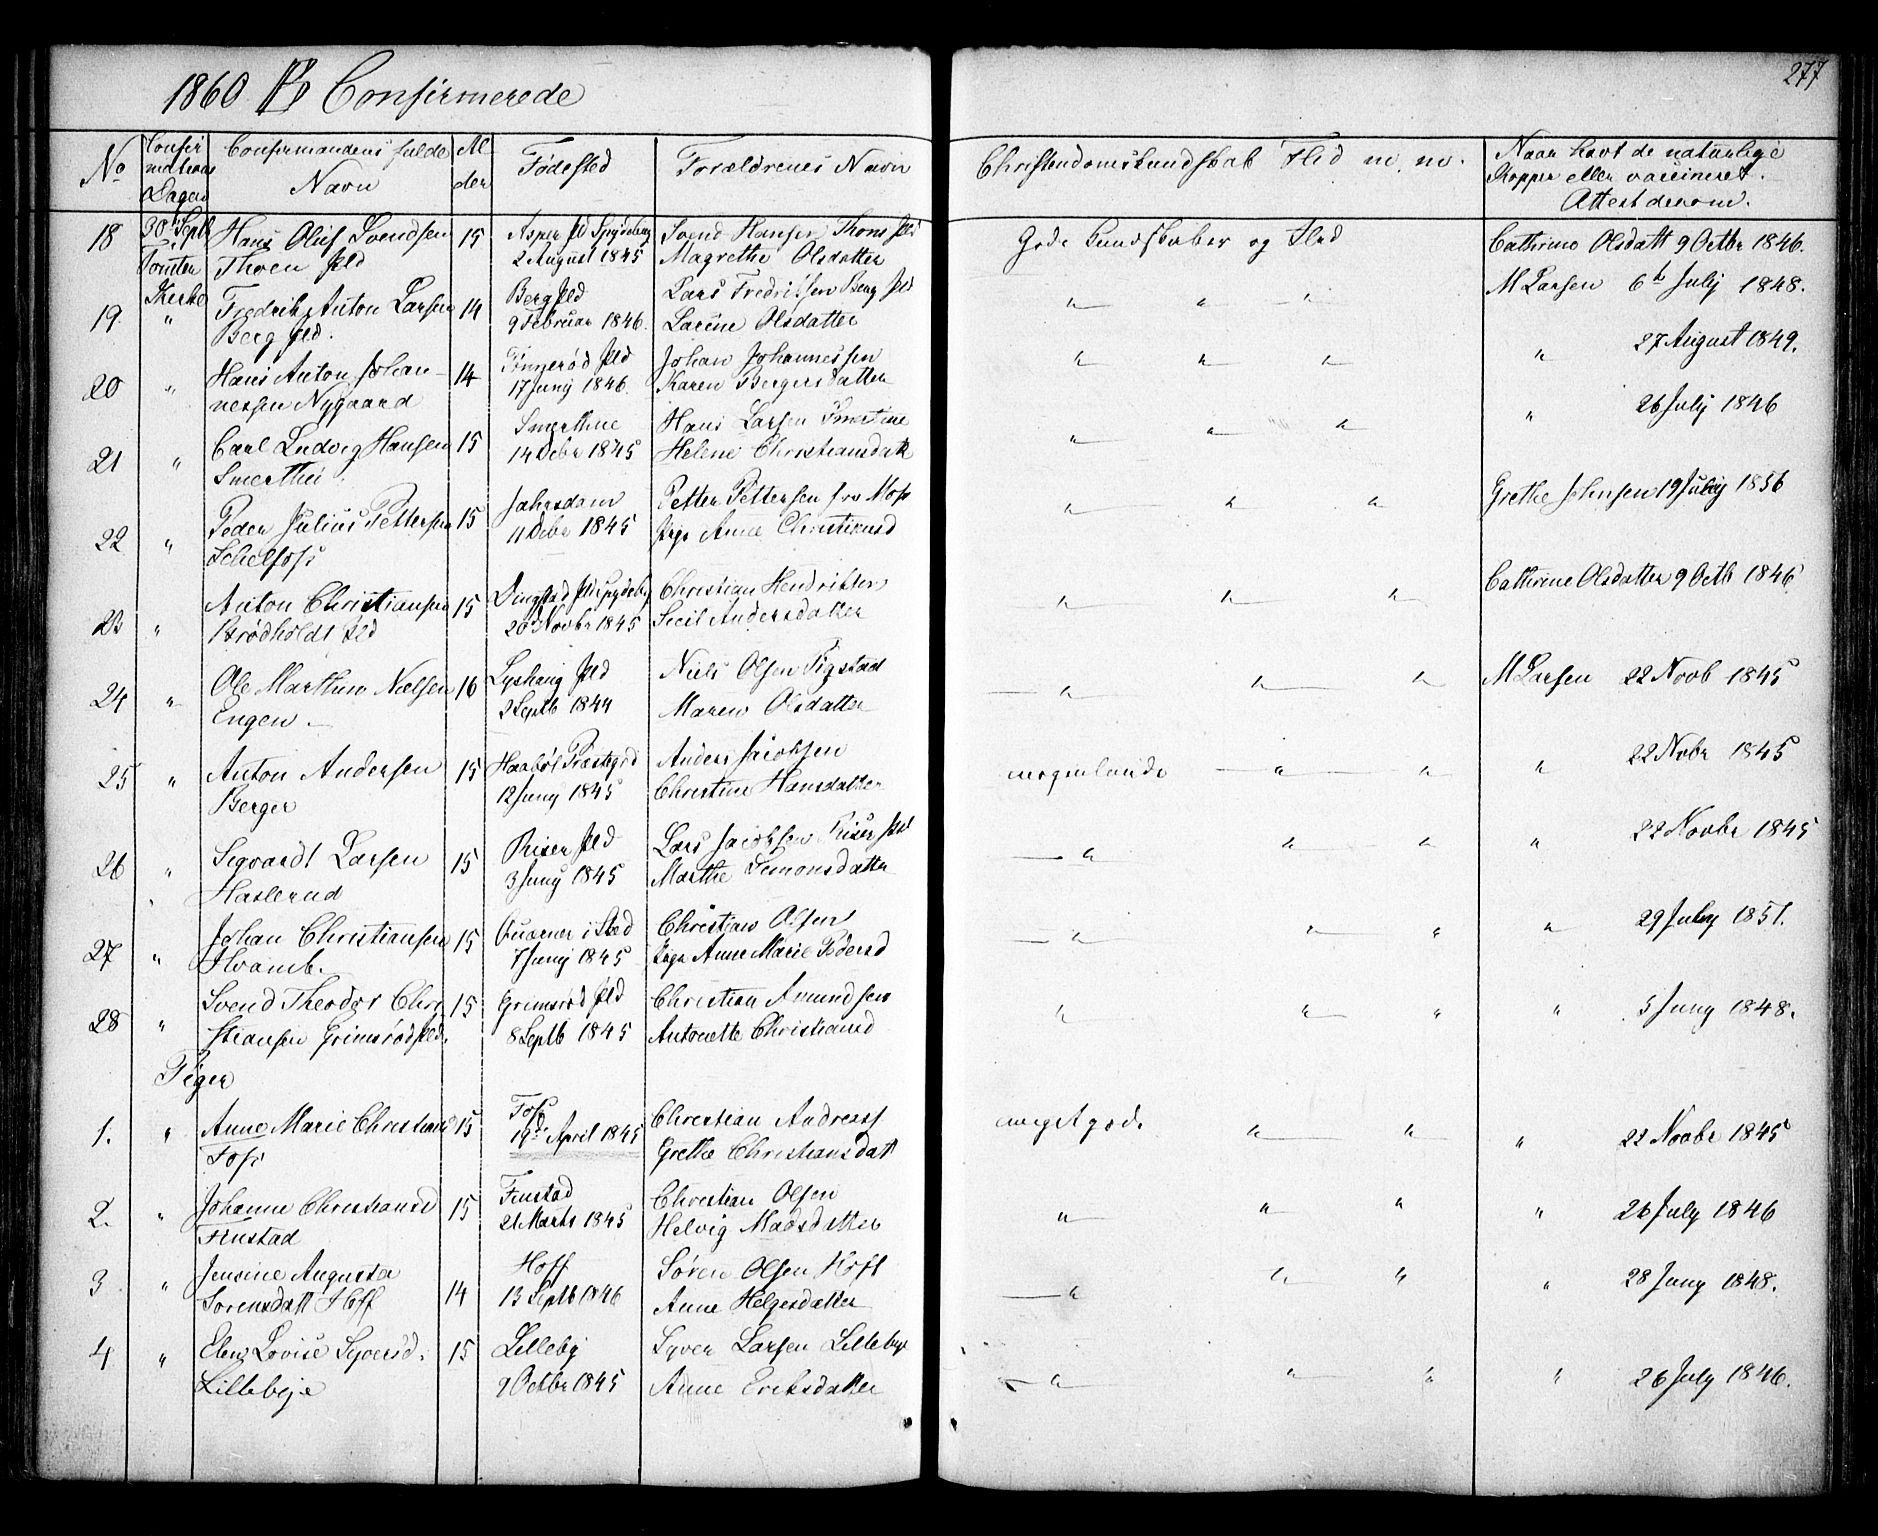 277
1860 Confirmerede
No
Confir
mations
Dagen
Confirmandens fulde
Navn
Al
der
Fødested
Forældrenes Navn
Christendomskundskab Flid m. m.
Naar havt de naturlige
Kopper eller vaccineret.
Attest derom.
18 30 Septb Hans Oluf Svendsen 15 Asper Spydeberg Svend Hansen Thoen Gode Kundskaber og Flid Cathrine Olsdatt 9 Octbr 1846.
Tomter Thoen 2 August 1845 Magrethe Olsdatter
Kirke
19. " Fredrik Anton Larsen 14 Berg Lars Fredriksen Berg " " " M Larsen 6te July 1848.
Berg 9 Februar 1846. Larine Olsdatter
20 " Hans Anton Johan- 14 Tømmerød Johan Johannessen " " " " 27 August 1849.
nessen Nygaard 17 Juny 1846 Karen Bergersdatter
21 " Carl Ludvig Hansen 15 Smerthue Hans Larsen " " " " 26 July 1846
14 Debr 1845 Helene Christiansdatt
22 " Peder Julius Pettersen 15 Petter Pettersen fra Moss " " " Grethe Johnsen 19 July 1856
11 Debr 1845 Pige Anne Christiansd
23 " Anton Christiansen 15 Spydeberg Christian Hendriksen " " " Cathrine Olsdatter 9 Octb 1846
Brødholdt 20 Novbr 1845 Secil Andersdatter
24 " Ole Marthin Nielsen 16 Niels Olsen Rigstad " " " M Larsen 22 Novb 1845
Engen. 2 Septb 1844 Maren Olsdatter
25 " Anton Andersen 15 Haabøl Præstegrd Anders Jacobsen nogenlunde " " " 22 Nobr 1845
Berger 12 Juny 1845 Christine Hansdatter
26 " Segvardt Larsen 15 Riser Lars Jacobsen Riser " " " " 22 Novbr 1845
Haslerud 3 Juny 1845 Marthe Simonsdatter
27 " Johan Christiansen 15 Christian Olsen " " " " 29 July 1851.
7 Juny 1845 Pige Anne Marie Pedersd
28 " Svend Theodor Chri 15 Grimsrød Christian Amundsen " " " " 5 Juny 1848.
stiansen Grimsrød 8 Septb 1845 Antonette Christiansd
Piger
1. " Anne Marie Christiansd 15 Foss Christian Andreass meget gode " " " 22 Novbr 1845
Foss 19de April 1845 Grethe Christiansdatt
2. " Johanne Christiansd 15 Finstad Christian Olsen " " " " 26 July 1846
Finstad 21 Marts 1845 Helvig Madsdatter
3 " Jensine Augusta 14 Hoff Søren Olsen Hoff " " " " 28 Juny 1848.
Sørensdatt Hoff 13 Septb 1846 Anne Helgesdatter
4 " Elen Lovise Syversd. 15 Lilleby Syver Larsen Lillebye " " " " 26 July 1846.
Lillebye 9 Octbr 1845 Anne Eriksdatter